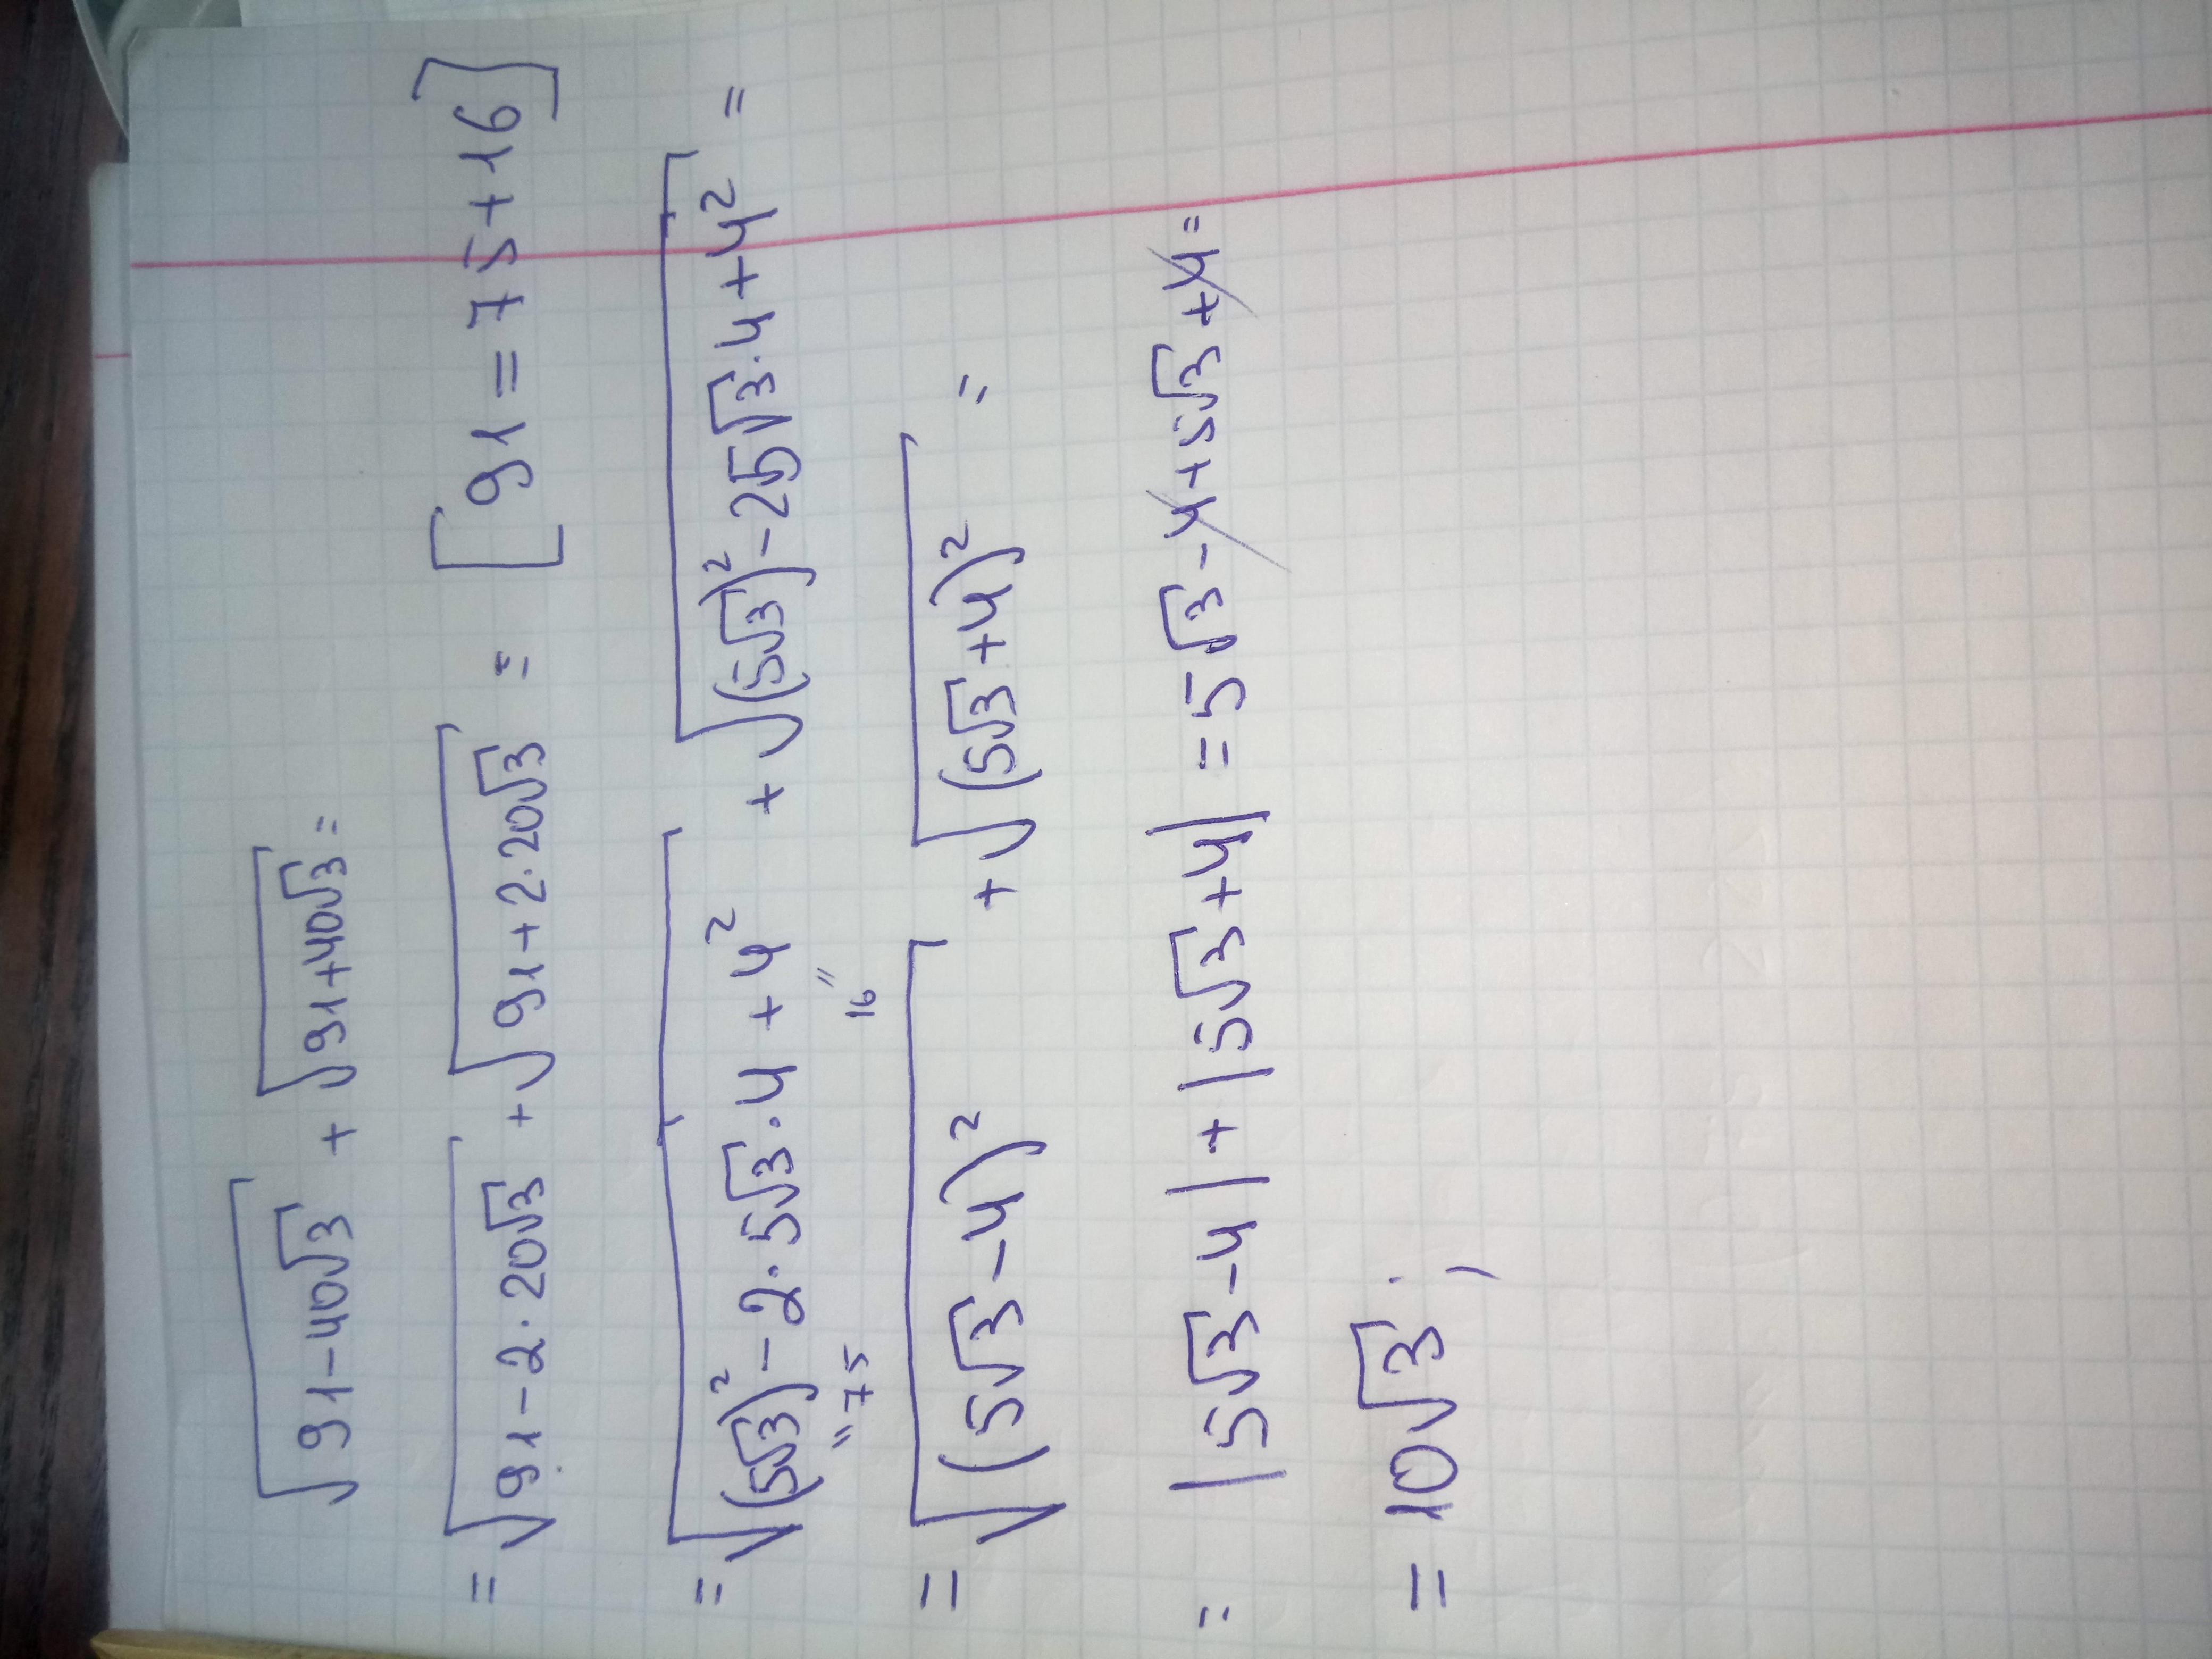 √(91-40√3) + √(91+40√3) =
= √(91-2·20√3) + √(91+2·20√3) = [91=75+16]
= √((5√3)²-2·5√3·4+4²) + √((5√3)²-25√3·4+4²) =
"75 16"
= √((5√3-4)²) + √((5√3+4)²) =
= |5√3-4|+|5√3+4| = 5√3-4+5√3+4=
= 10√3;